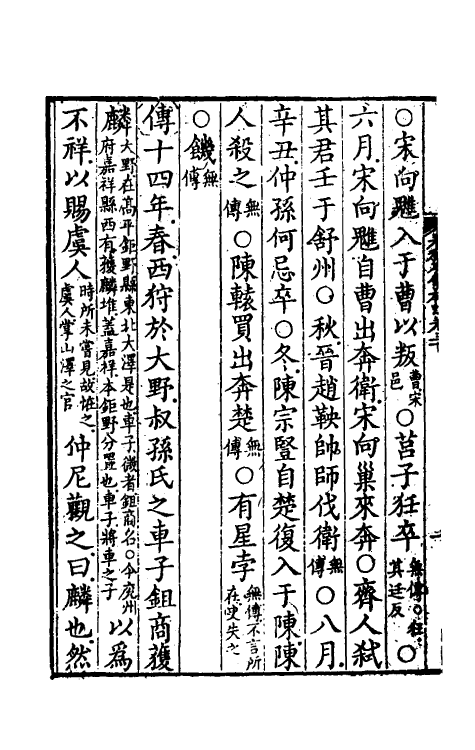 ○宋向魋入于曹以叛曹宋邑○莒子狂卒無傳○狂其廷反○
六月宋向魋自曹出奔衛宋向巢來奔○齊人弒
其君壬于舒州○秋晉趙鞅帥師伐衛無傳○八月
辛丑仲孫何忌卒○冬陳宗豎自楚復入于陳陳
人殺之無傳○陳轅買出奔楚無傳○有星孛無傳不言所在史失之
○饑無傳
傳十四年春西狩於大野叔孫氏之車子鉏商獲
麟大野在高平鉅野縣東北大澤是也車子微者鉏商名○今兗州府嘉祥縣西有獲麟堆蓋嘉祥本鉅野分置也車子將車之子以為
不祥以賜虞人時所未嘗見故怪之虞人掌山澤之官仲尼觀之曰麟也然